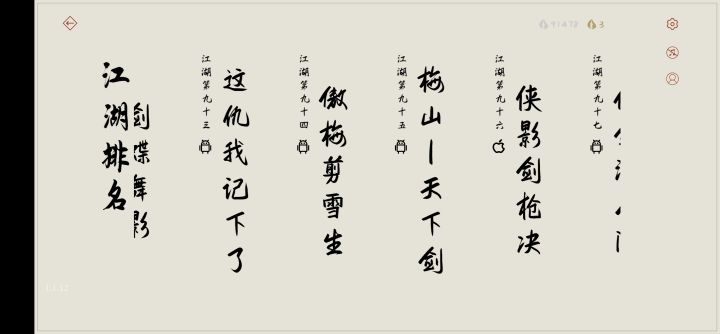 江湖排名
剑喋舞影
江湖第九十三
这仇我记下了
江湖第九十四
傲梅剪雪生
江湖第九十五
梅山丨天下剑
江湖第九十六
侠影剑枪决
江湖第九十七
3
1.1.12